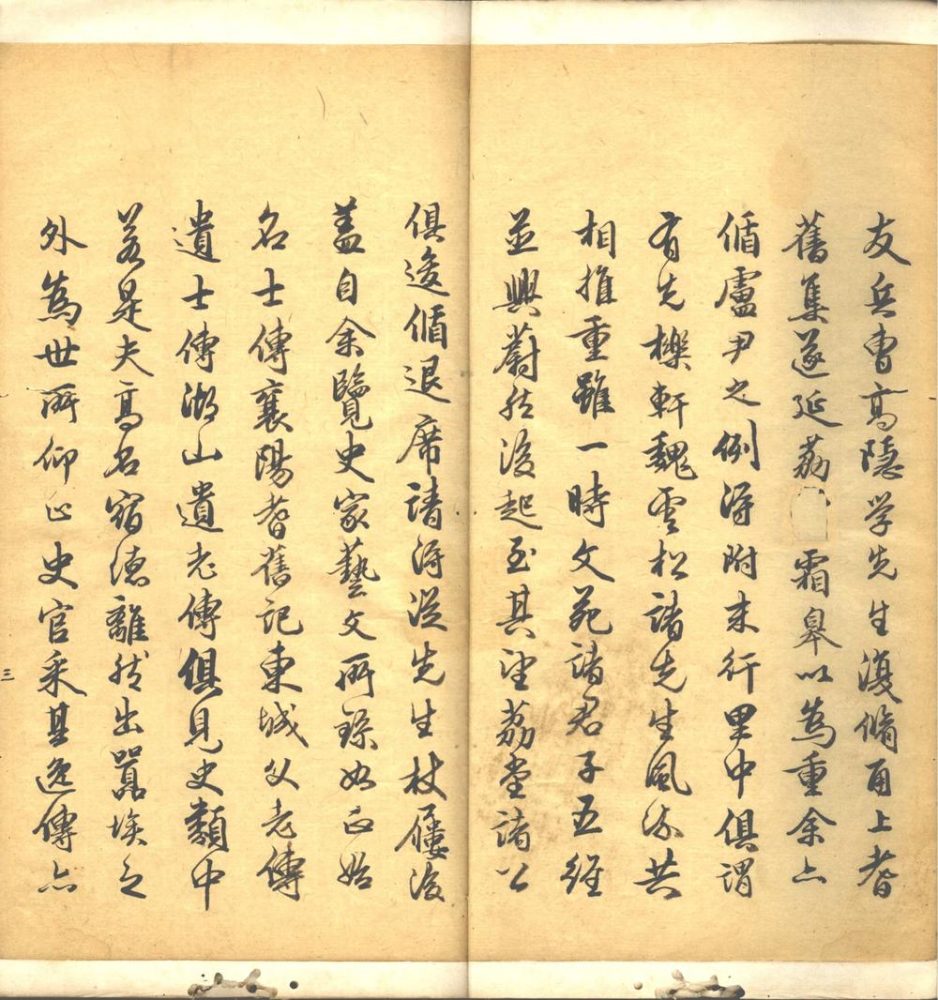 友兵曹高隱学先生復脩甬上耆
舊集遂延荔霜皋以為重余亦
循盧尹之例得附末行里中俱謂
有先櫟軒魏雲松諸先生風流共
相推重雖一時文苑諸君子五經
並興蔚然後起至其望荔堂諸公
俱逡循退席請得從先生杖屨後
蓋自余覽史家藝文所録如正始
名士傳襄陽耆舊記東城父老傳
遺士傳湖山遺老傳俱見史類中
若是夫高名宿德離然出囂埃之
外為世所仰止史官采其逸傳亦
三